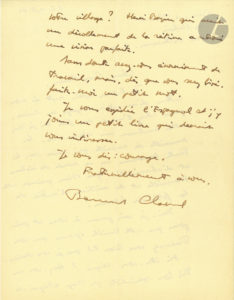 votre village ? Henri qui
un décollement de la rétine a
une vision parfaite.
Sans doute avez-vous
travail, mais, dès que vous
faites-moi un petit mot.
Je vous expédie l'Espagnol et j'y
joins un petit livre qui devrait
vous intéresser.
Je vous dis : courage.
Fraternellement à vous,
Bernard Clavel